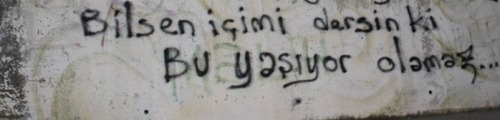 Bilsen içimi dersin ki
Bu yaşıyor olamaz...